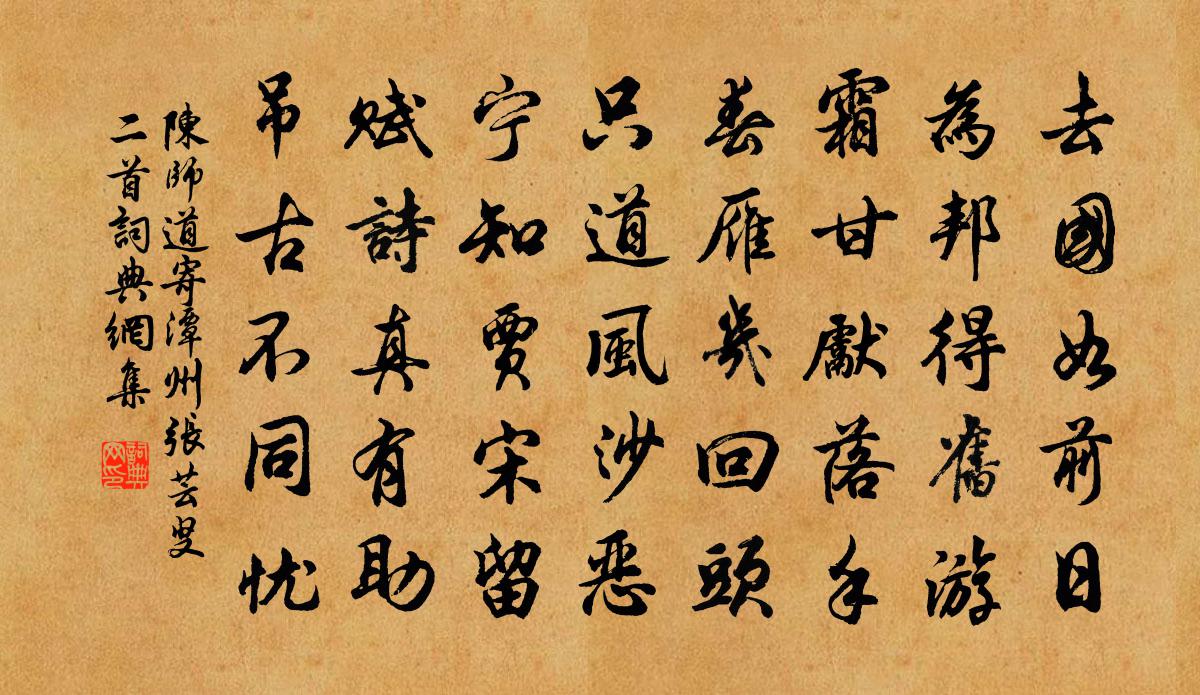 去國如前日
為邦得舊游
霜甘獻落手
春雁幾回頭
只道風沙惡
宁知賈宋留
賦詩真有助
吊古不同忧
陳師道寄潭州張芸叟
二首詞典網集
詞典
网印